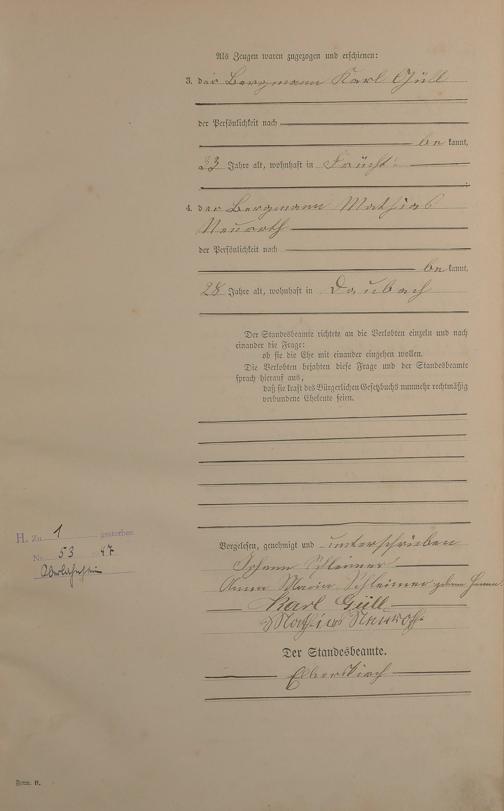 Als Zeugen waren zugezogen und erschienen:
3. der Bergmann Karl Güll
der Persönlichkeit nach
be kannt,
33 Jahre alt, wohnhaft in Frücht
4. der Bergmann Mathias
Neuroth
der Persönlichkeit nach
be kannt,
28 Jahre alt, wohnhaft in Daubach
Der Standesbeamte richtete an die Verlobten einzeln und nach
einander die Frage:
ob sie die Ehe mit einander eingehen wollen.
Die Verlobten bejahten diese Frage und der Standesbeamte
sprach hierauf aus,
daß sie kraft des Bürgerlichen Gesetzbuchs nunmehr rechtmäßig
verbundene Eheleute seien.
H. Zu 1 gestorben
Nr. 53 47
Oberlahnstein
Vorgelesen, genehmigt und unterschrieben
Johann Schleimer
Anna Maria Schleimer geborne
Karl Güll
Mathias Neuroth
Der Standesbeamte.
Form. B.